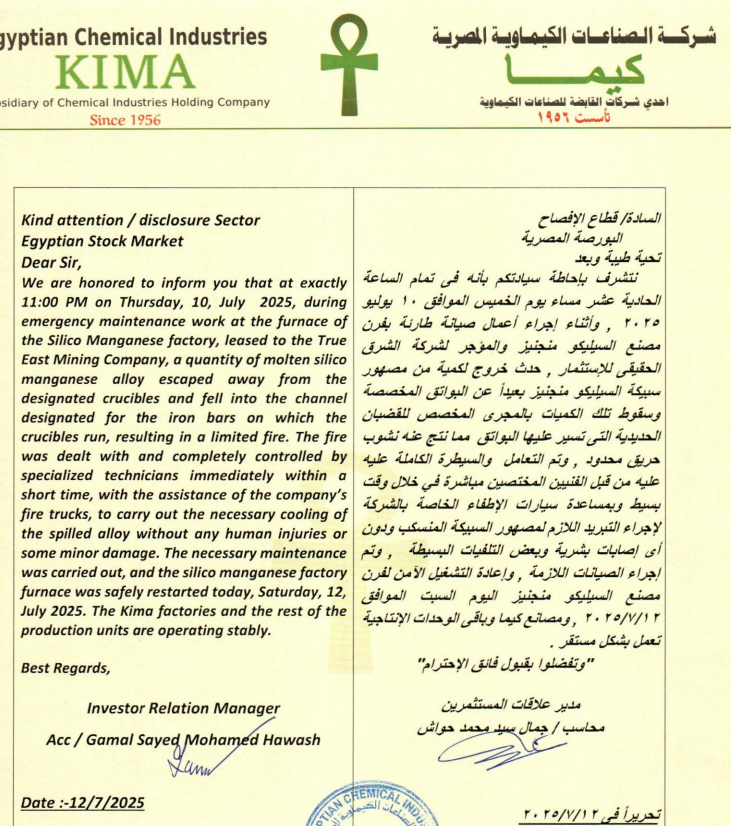 gyptian Chemical Industries
KIMA
sidiary of Chemical Industries Holding Company
Since 1956
شركة الصناعات الكيماوية المصرية
كيما
احدي شركات القابضة للصناعات الكيماوية
تأسست ١٩٥٦
Kind attention / disclosure Sector
Egyptian Stock Market
Dear Sir,
We are honored to inform you that at exactly
11:00 PM on Thursday, 10, July 2025, during
emergency maintenance work at the furnace of
the Silico Manganese factory, leased to the True
East Mining Company, a quantity of molten silico
manganese alloy escaped away from the
designated crucibles and fell into the channel
designated for the iron bars on which the
crucibles run, resulting in a limited fire. The fire
was dealt with and completely controlled by
specialized technicians immediately within a
short time, with the assistance of the company's
fire trucks, to carry out the necessary cooling of
the spilled alloy without any human injuries or
some minor damage. The necessary maintenance
was carried out, and the silico manganese factory
furnace was safely restarted today, Saturday, 12,
July 2025. The Kima factories and the rest of the
production units are operating stably.
Best Regards,
Investor Relation Manager
Acc / Gamal Sayed Mohamed Hawash
Date :-12/7/2025
السادة/ قطاع الإفصاح
البورصة المصرية
تحية طيبة وبعد
نتشرف بإحاطة سيادتكم بأنه فى تمام الساعة
الحادية عشر مساء يوم الخميس الموافق ١٠ يوليو
٢٠٢٥ , وأثناء إجراء أعمال صيانة طارئة بفرن
مصنع السيليكو منجنيز والمؤجر لشركة الشرق
الحقيقى للإستثمار , حدث خروج لكمية من مصهور
سبيكة السيليكو منجنيز بعيداً عن البواتق المخصصة
وسقوط تلك الكميات بالمجرى المخصص للقضبان
الحديدية التى تسير عليها البواتق مما نتج عنه نشوب
حريق محدود , وتم التعامل والسيطرة الكاملة عليه
عليه من قبل الفنيين المختصين مباشرة في خلال وقت
بسيط وبمساعدة سيارات الإطفاء الخاصة بالشركة
لإجراء التبريد اللازم لمصهور السبيكة المنسكب ودون
أى إصابات بشرية وبعض التلفيات البسيطة , وتم
إجراء الصيانات اللازمة , وإعادة التشغيل الآمن لفرن
مصنع السيليكو منجنيز اليوم السبت الموافق
٢٠٢٥/٧/١٢ , ومصانع كيما وباقى الوحدات الإنتاجية
تعمل بشكل مستقر .
"وتفضلوا بقبول فائق الإحترام"
مدير علاقات المستثمرين
محاسب / جمال سيد محمد حواش
تحريراً فى ٢٠٢٥/٧/١٢